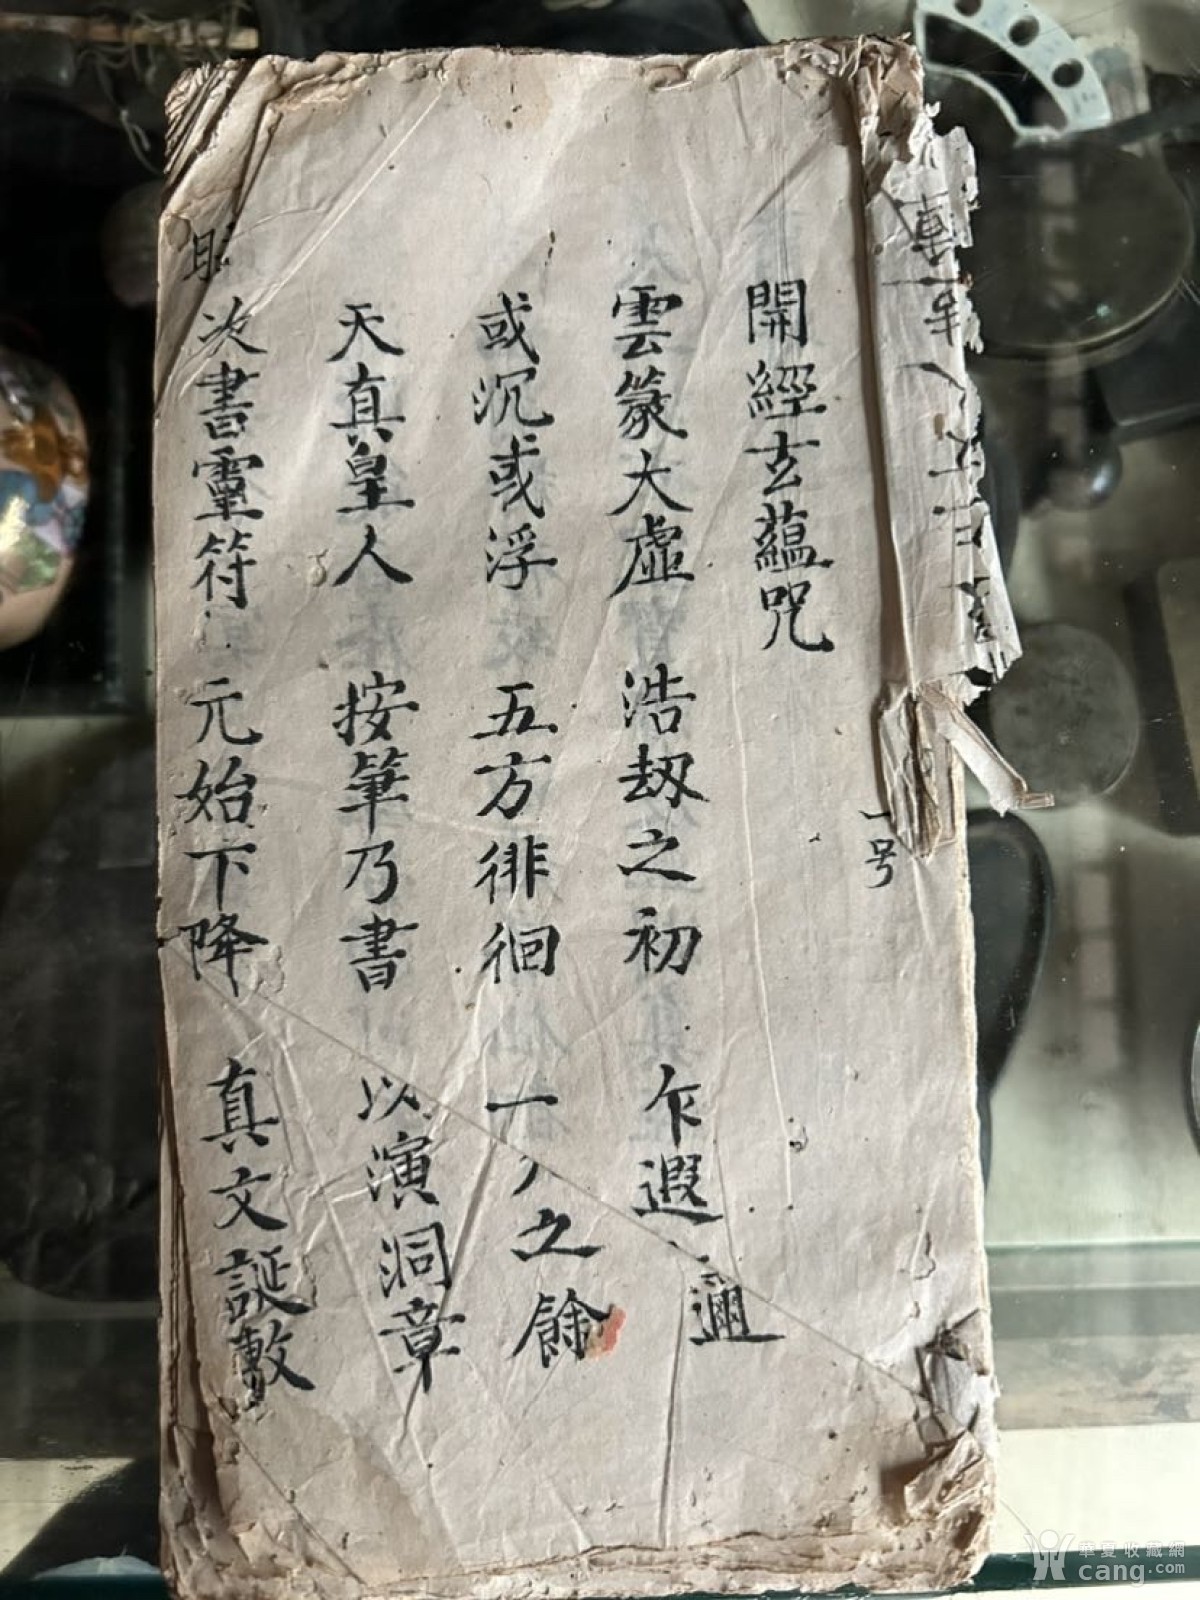 一号
開經玄蘊咒
雲篆大虛 浩刼之初 乍遐 邇
或沉或浮 五方徘徊 一 之餘
天真皇人 按筆乃書 以演洞章
次書靈符 元始下降 真文誕敷
華夏收藏網
cang.com